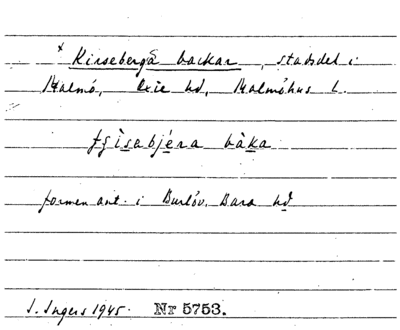 x Kirsebergå backar, stadsdel i
Malmö, Oxie hd, Malmöhus l.
bàka
formen ant. i Burlöv, Bara hd
I. Ingers 1945. Nr 5753.